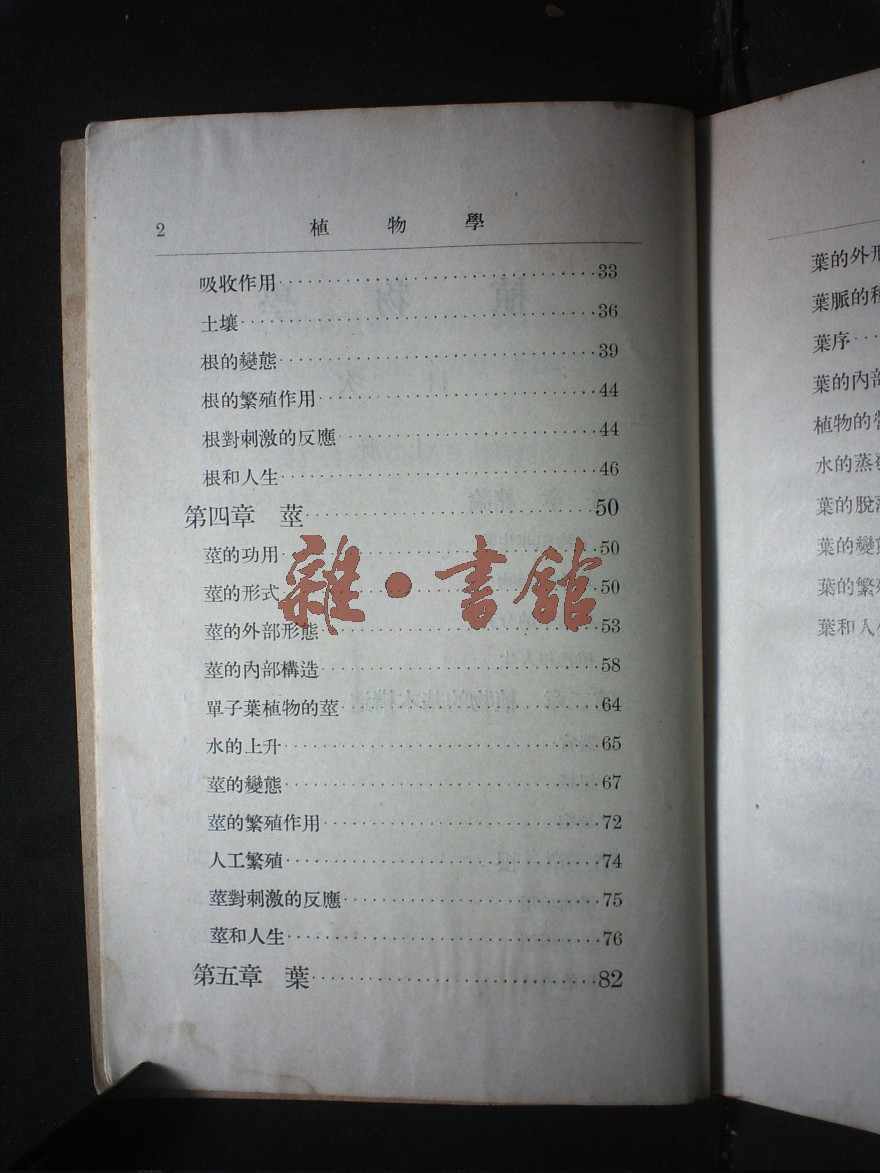 2 植物學
吸收作用……33
土壤……36
根的變態……39
根的繁殖作用……44
根對刺激的反應……44
根和人生……46
第四章 莖……50
莖的功用……50
莖的形式……50
莖的外部形態……53
莖的內部構造……58
單子葉植物的莖……64
水的上升……65
莖的變態……67
莖的繁殖作用……72
人工繁殖……74
莖對刺激的反應……75
莖和人生……76
第五章 葉……82
雜·書館
葉的外形
葉脈的種
葉序…
葉的內部
植物的營
水的蒸發
葉的脫落
葉的變態
葉的繁殖
葉和人生